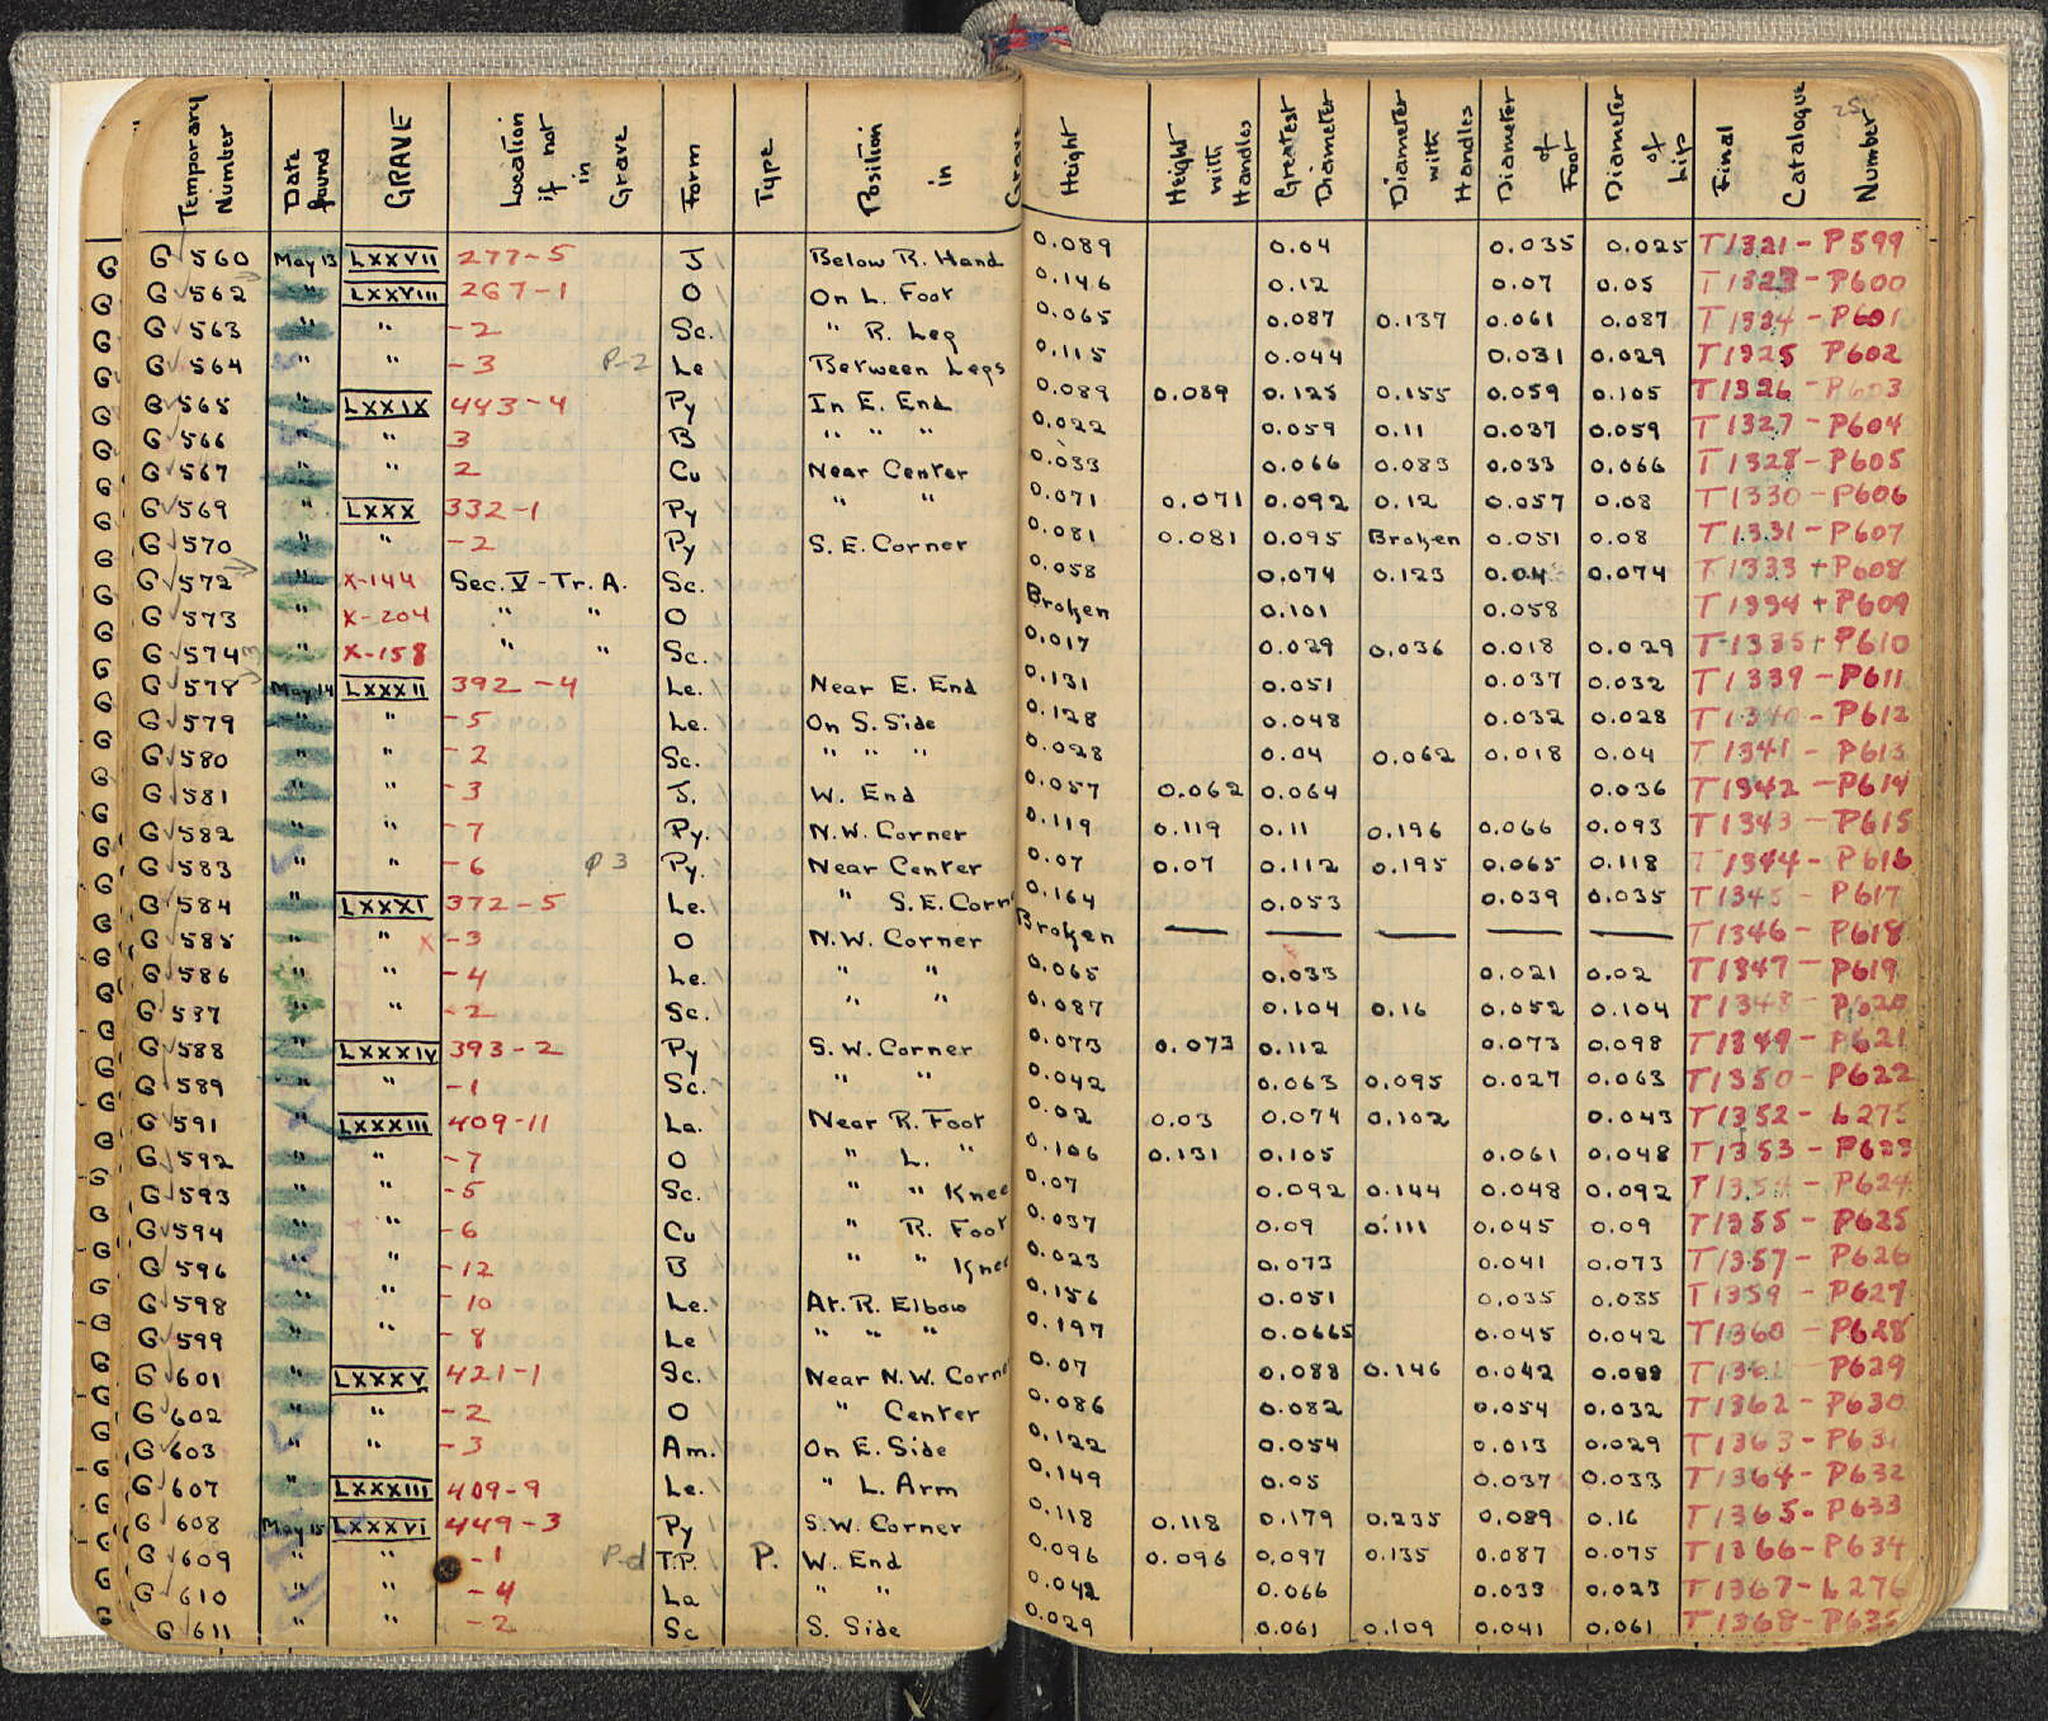 Temporary Number | Date found | GRAVE | Location if not in Grave | Form | Type | Position in Grave | Height | Height with Handles | Greatest Diameter | Diameter with Handles | Diameter of Foot | Diameter of Lip | Final Catalogue Number 25
G 560 May 13 LXXVII 277-5 J Below R. Hand 0.089 0.04 0.035 0.025 T1321-P599
G 562 " LXXVIII 267-1 O On L. Foot 0.146 0.12 0.07 0.05 T1323-P600
G 563 " " -2 Sc. " R. Leg 0.065 0.087 0.137 0.061 0.087 T1324-P601
G 564 " " -3 P-2 Le Between Legs 0.115 0.044 0.031 0.029 T1325 P602
G 565 " LXXIX 443-4 Py In E. End 0.089 0.089 0.125 0.155 0.059 0.105 T1326-P603
G 566 " " 3 B " " " 0.022 0.059 0.11 0.037 0.059 T1327-P604
G 567 " " 2 Cu Near Center 0.033 0.066 0.083 0.033 0.066 T1328-P605
G 569 " LXXX 332-1 Py " " 0.071 0.071 0.092 0.12 0.057 0.08 T1330-P606
G 570 " " -2 Py S.E. Corner 0.081 0.081 0.095 Broken 0.051 0.08 T1331-P607
G 572 " X-144 Sec. V-Tr. A. Sc. 0.058 0.074 0.123 0.04 0.074 T1333+P608
G 573 " X-204 " " O Broken 0.101 0.058 T1334+P609
G 574 " X-158 " " Sc. 0.017 0.029 0.036 0.018 0.029 T1335+P610
G 578 May 14 LXXXII 392-4 Le. Near E. End 0.131 0.051 0.037 0.032 T1339-P611
G 579 " " -5 Le. On S. Side 0.128 0.048 0.032 0.028 T1340-P612
G 580 " " -2 Sc. " " " 0.028 0.04 0.062 0.018 0.04 T1341-P613
G 581 " " -3 J. W. End 0.057 0.062 0.064 0.036 T1342-P614
G 582 " " -7 Py. N.W. Corner 0.119 0.119 0.11 0.196 0.066 0.093 T1343-P615
G 583 " " -6 P3 Py. Near Center 0.07 0.07 0.112 0.195 0.065 0.118 T1344-P616
G 584 " LXXXI 372-5 Le. " S.E. Corn 0.164 0.053 0.039 0.035 T1345-P617
G 585 " " X -3 O N.W. Corner Broken — — — — — T1346-P618
G 586 " " -4 Le. " " 0.065 0.033 0.021 0.02 T1347-P619
G 587 " " -2 Sc. " " 0.087 0.104 0.16 0.052 0.104 T1348-P620
G 588 " LXXXIV 393-2 Py S.W. Corner 0.073 0.073 0.112 0.073 0.098 T1349-P621
G 589 " " -1 Sc. " " 0.042 0.063 0.095 0.027 0.063 T1350-P622
G 591 " LXXXIII 409-11 La. Near R. Foot 0.02 0.03 0.074 0.102 0.043 T1352-L275
G 592 " " -7 O " L. " 0.106 0.131 0.105 0.061 0.048 T1353-P623
G 593 " " -5 Sc. " " Knee 0.07 0.092 0.144 0.048 0.092 T1354-P624
G 594 " " -6 Cu " R. Foot 0.037 0.09 0.111 0.045 0.09 T1355-P625
G 596 " " -12 B " " Knee 0.023 0.073 0.041 0.073 T1357-P626
G 598 " " -10 Le. At. R. Elbow 0.156 0.051 0.035 0.035 T1359-P627
G 599 " " -8 Le " " " 0.197 0.0665 0.045 0.042 T1360-P628
G 601 " LXXXV 421-1 Sc. Near N.W. Corne 0.07 0.088 0.146 0.042 0.088 T1361 P629
G 602 " " -2 O " Center 0.086 0.082 0.054 0.032 T1362-P630
G 603 " " -3 Am. On E. Side 0.122 0.054 0.013 0.029 T1363-P631
G 607 " LXXXIII 409-9 Le. " L. Arm 0.149 0.05 0.037 0.033 T1364-P632
G 608 May 15 LXXXVI 449-3 Py S.W. Corner 0.118 0.118 0.179 0.235 0.089 0.16 T1365-P633
G 609 " " -1 P-d T.P. P. W. End 0.096 0.096 0.097 0.135 0.087 0.075 T1366-P634
G 610 " " -4 La " " 0.042 0.066 0.033 0.023 T1367-L276
G 611 " " -2 Sc S. Side 0.029 0.061 0.109 0.041 0.061 T1368-P635